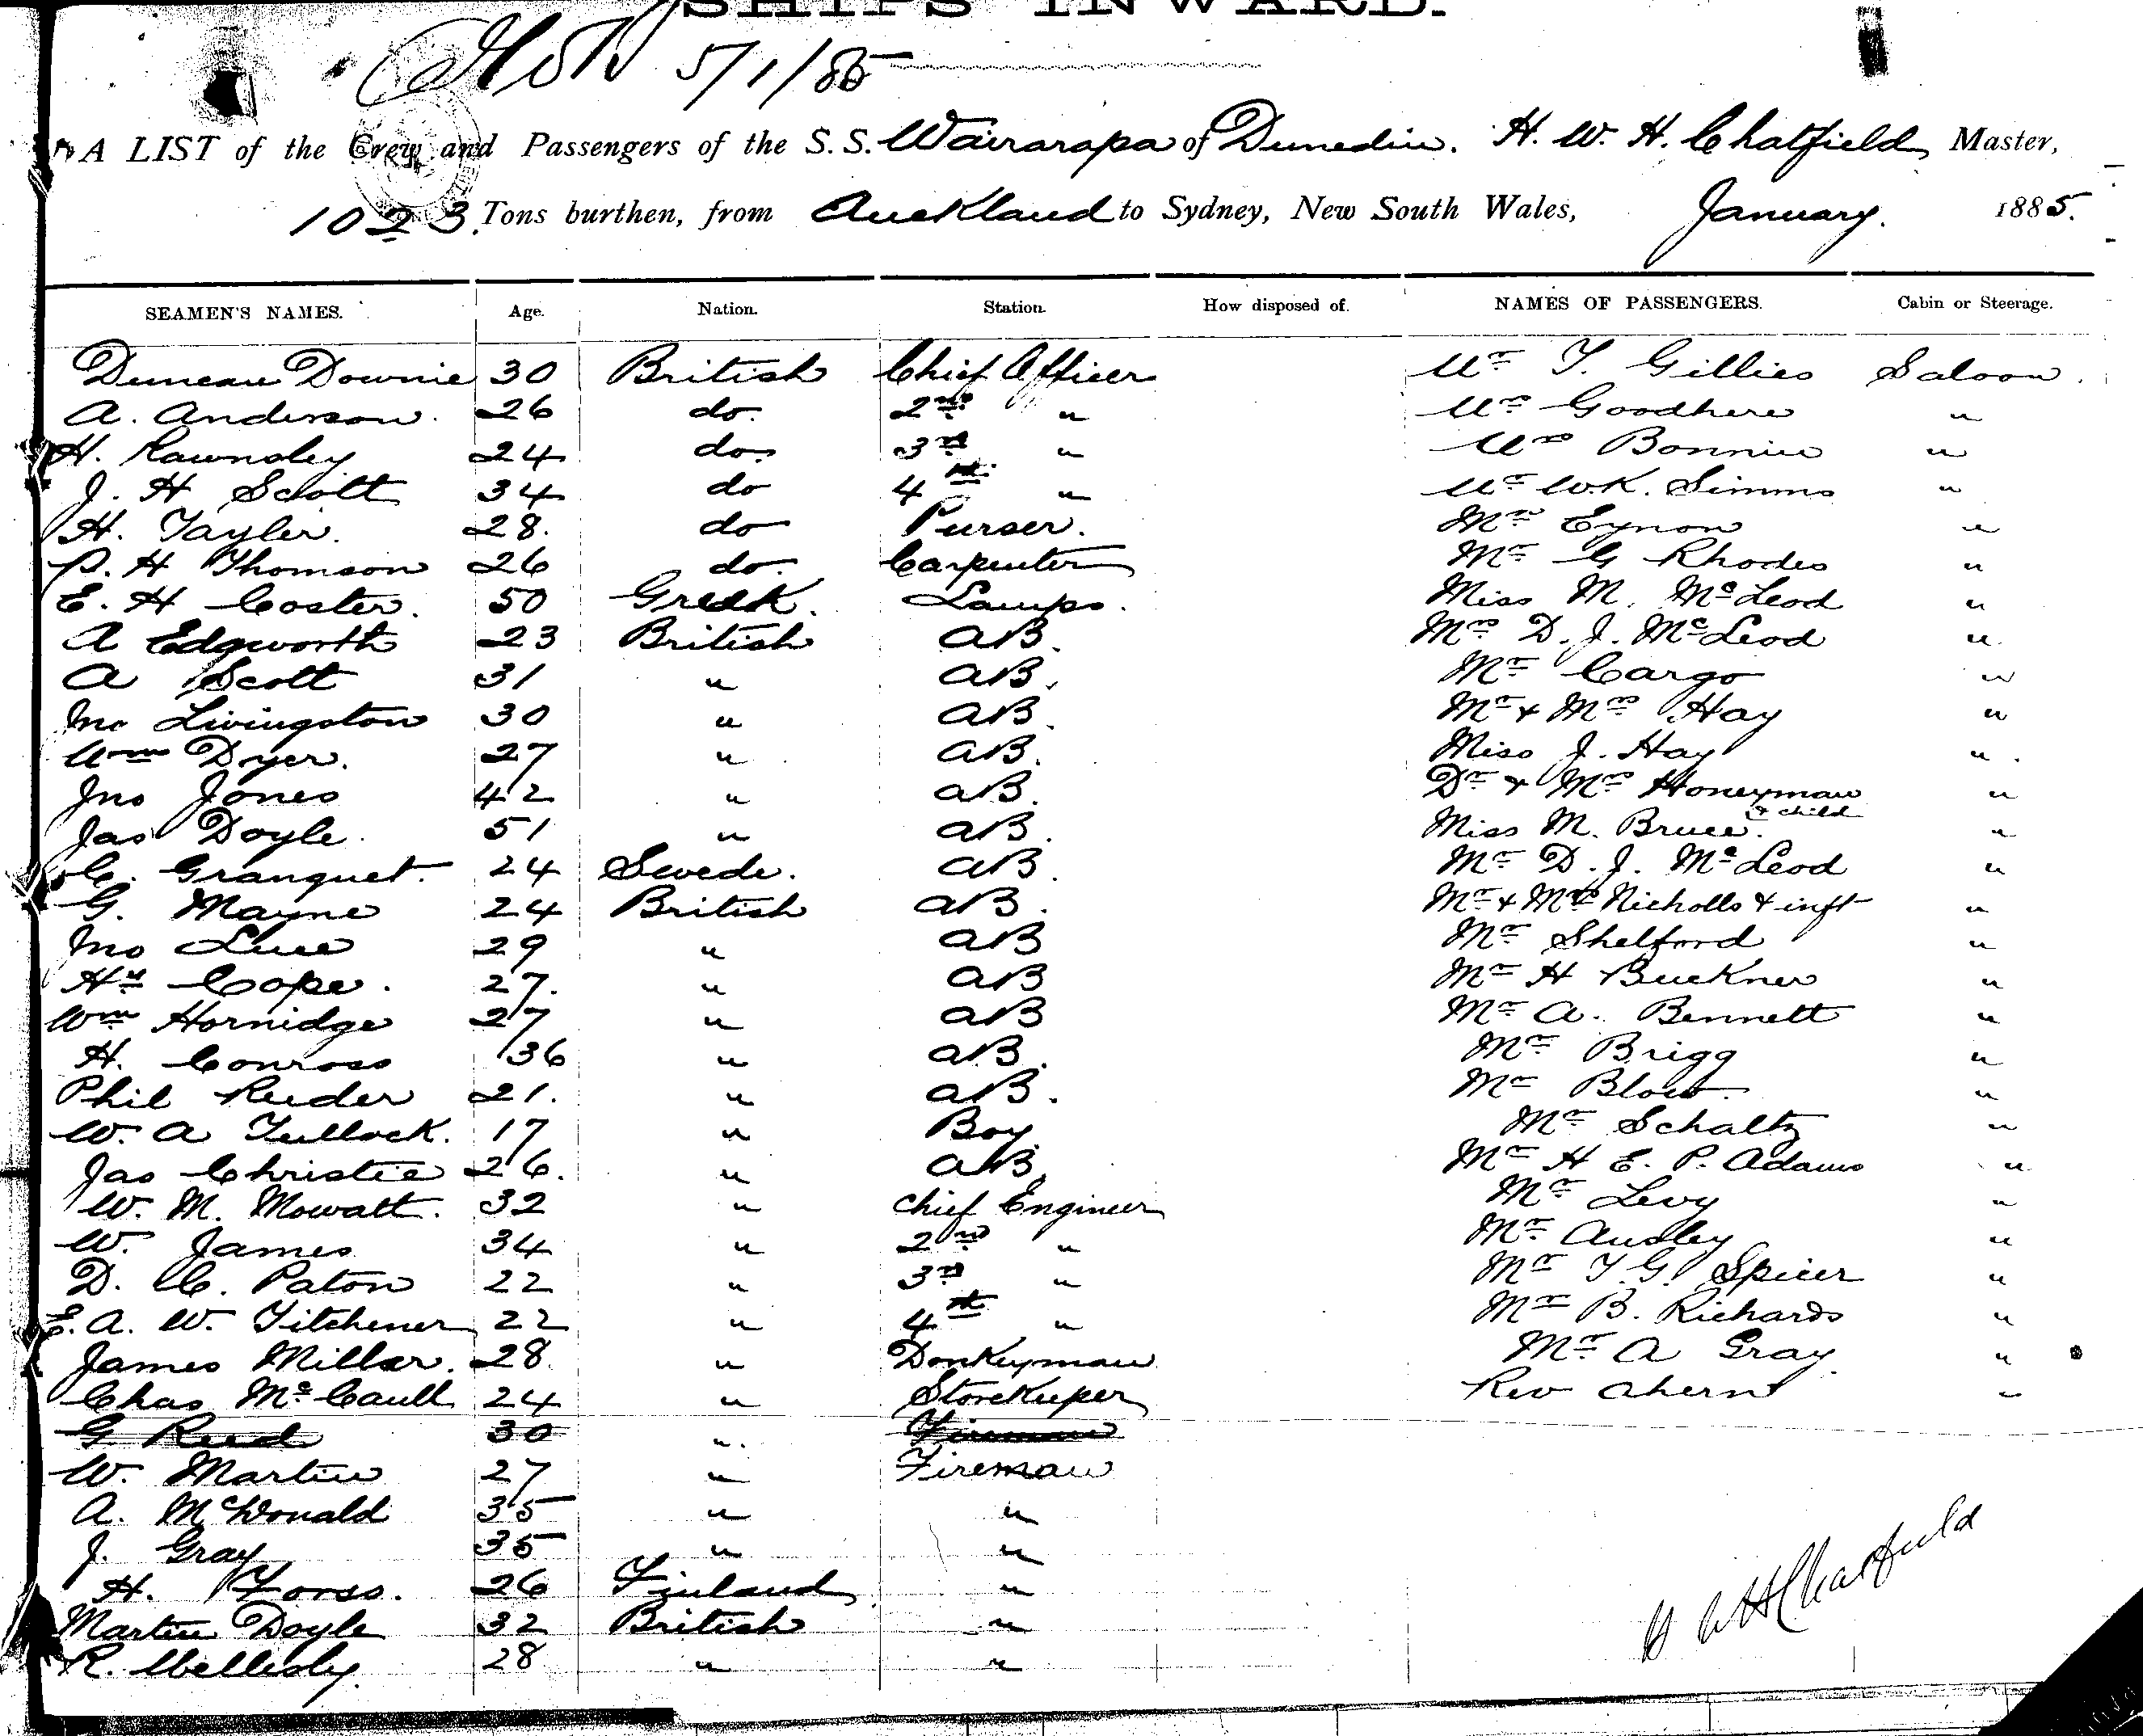 SHIPS INWARD.
5/1/85
A LIST of the Crew and Passengers of the S.S. Wairarapa of Dunedin. H. W. H. Chatfield, Master,
1023 Tons burthen, from Auckland to Sydney, New South Wales, January. 1885.
SEAMEN'S NAMES. Age. Nation. Station. How disposed of. NAMES OF PASSENGERS. Cabin or Steerage.
Duncan Downie 30 British Chief Officer Mr T. Gillies Saloon.
A. Anderson. 26 do. 2nd " Mrs Goodhere "
H. Rawnsley 24 do. 3rd " Mrs Bonnin "
J. H Scott 34 do 4th " Mr W.K. Simms "
H. Tayler. 28. do Purser. Mrs Eynon "
P. H Thomson 26 do. Carpenter Mr G Rhodes "
E. H Coster. 50 Greek. Lamps. Miss M. McLeod "
A Edgworth 23 British AB. Mrs D. J. McLeod "
A Scott 31 " AB. Mr Cargo "
Livingston 30 " AB. Mr & Mrs Hay "
Wm Dyer. 27 " AB. Miss J. Hay "
Jno Jones 42 " AB. Dr & Mrs Honeyman & child "
Jas Doyle. 51 " AB. Miss M. Bruce. "
C. Granquet. 24 Swede. AB. Mr D. J. McLeod "
G. Mayne 24 British AB. Mr & Mrs Nicholls & inft "
Jno Luce 29 " AB Mr Shelford "
Hy Cope. 27. " AB Mr H Buckner "
Wm Hornidge 27 " AB Mr A. Bennett "
H. Conross 36 " AB. Mr Brigg "
Phil Reeder 21. " AB. Mr Blow. "
W. A Tullock. 17 " Boy. Mr Schaltz "
Jas Christie 26. " AB. Mr H E. P. Adams "
W. M. Mowatt. 32 " Chief Engineer Mr Levy "
W. James 34 " 2nd " Mr Ausley "
D. C. Paton 22 " 3rd " Mr T. G. Spicer "
E. A. W. Titchener 22 " 4th " Mr B. Richards "
James Millar. 28. " Donkeyman Mr A Gray. "
Chas McCaull 24 " Storekeeper Rev Ahern "
G Reed 30 " Fireman
W. Martin 27 " Fireman
A. McDonald 35 " "
J. Gray 35 " "
H. Forss. 26 Finland "
Martin Doyle 32 British "
R. 28 " "
H W H Chatfield